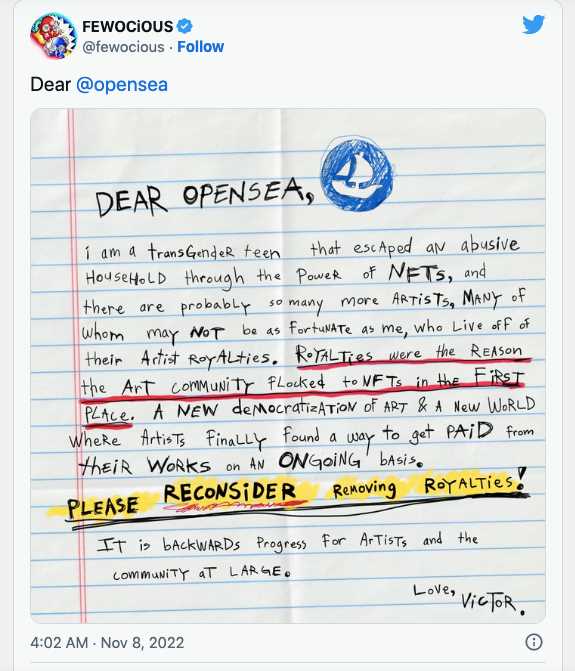 FEWOCiOUS
@fewocious · Follow
Dear @opensea
DEAR OPENSEA,
i am a transGendeR teen that escAped AN abusive
HouseHoLD through the PoweR of NFTs, and
there are probabLy so many more ARTisTs, MANy of
whom may NOT be as forTuNATe as me, who Live off of
their Artist RoyALTies. RoYALTies were the REASON
the ArT communiTy FLocked to NFTs in the FiRST
PLACe. A NEW deMocratizATioN of ART & A New WoRLD
wheRe ArtisTs FinaLLy found a way to get PAiD from
theiR WoRKs on AN ONGoiNG basis.
PLEASE RECONSiDER Removing ROYALTies!
IT is bACKWARDs Progress for ArTisTs and the
communiTy aT LARGe.
Love,
VicToR.
4:02 AM · Nov 8, 2022